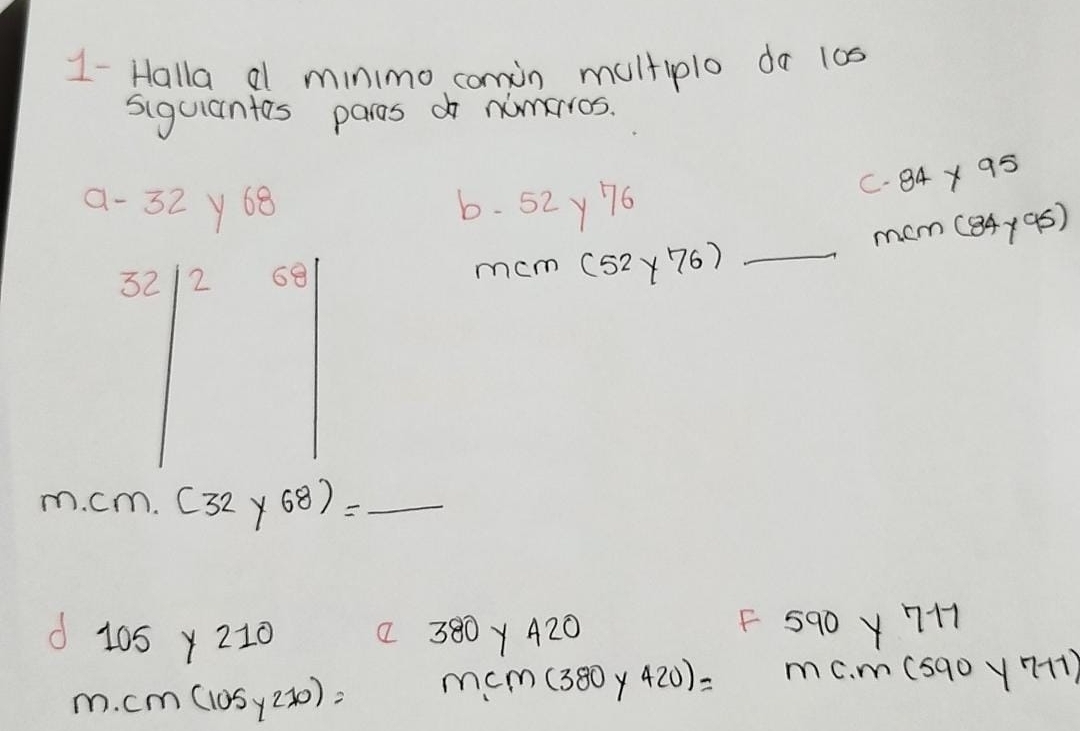 1- Halla el minimo común multiplo de los
siguientes pares de números.
a- 32 y 68
b- 52 y 76
c- 84 y 95
mcm (52 y 76) ____
mcm (84 y 95)
32 | 2 68 |
m.cm. (32 y 68) = ____
d 105 y 210
e 380 y 420
F 590 y 711
m.cm (105 y 210) =
m.cm (380 y 420) =
m c.m (590 y 711)